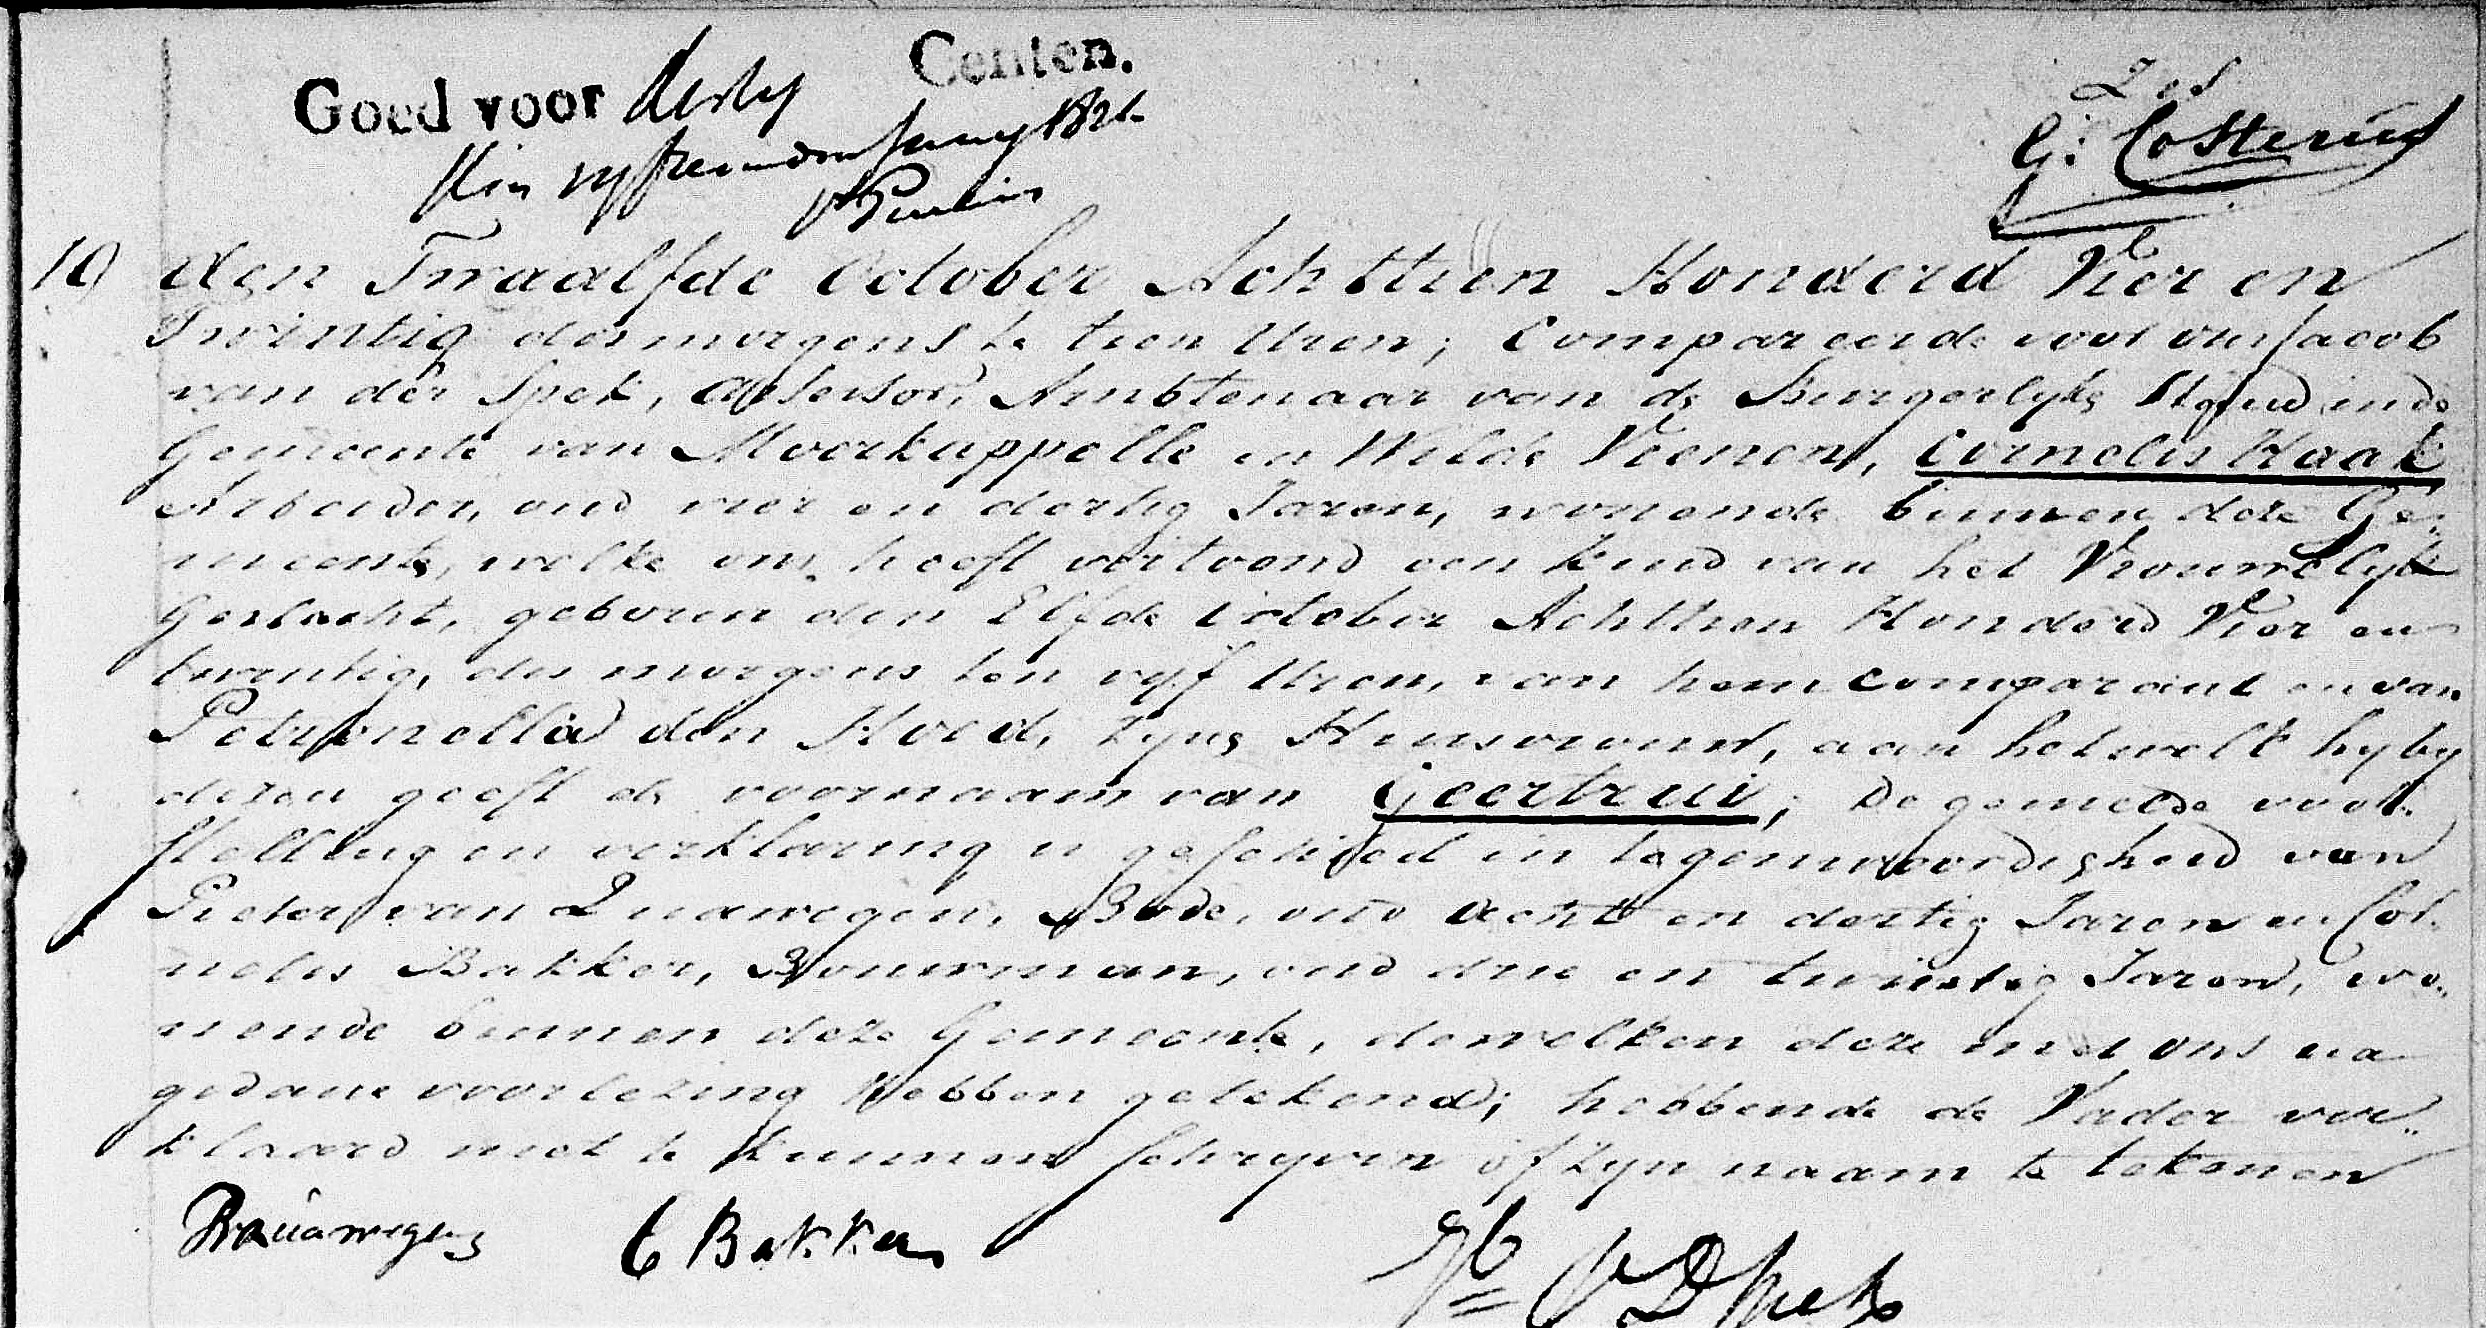 Centen.
Goed voor dertig
den vyftienden January 1824
G: Costerus
10 den Twaalfde october Achttien Honderd Vier en
Twintig des morgens te tien Uren; Compareerde voor ons Jacob
van der Spek, Assessor, Ambtenaar van de Burgerlyke Stand in de
Gemeente van Moerkappelle en Wilde Veenen, Cornelis Haak
Arbeider, oud vier en dertig Jaren, wonende binnen deze Ge„
meente, welke ons heeft vertoond een kind van het Vrouwelyk
Geslacht, geboren den Elfde october Achttien Honderd Vier en
twintig, des morgens ten vyf Uren, van hem comparant en van
Petronella den Hoed, Zyne Huisvrouw, aan hetwelk hy by
dezen geeft de voornaam van Geertrui; De gemelde voor„
stelling en verklaring is geschied in tegenwoordigheid van
Pieter van Quawegen, Bode, oud acht en dertig Jaren en Cor„
nelis Bakker, Bouwman, oud drie en twintig Jaren, wo„
nende binnen deze Gemeente, dewelken deze met ons na
gedane voorlezing Hebben getekend; hebbende de Vader ver„
klaard niet te kunnen schryven of zyn naam te tekenen
PvanQuawegen C Bakker
Jb VD Spek